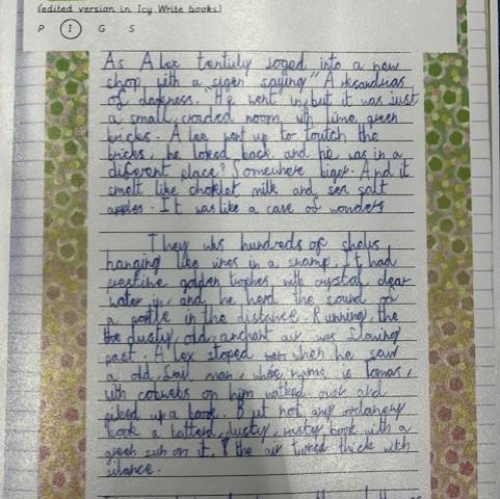 (edited version in Icy Write books)
P I G S
As Alex tentuly joged into a new
shop with a sigen saying "Alexandrias
of darkness." He went in but it was just
a small, craded room with lime green
bricks. Alex went up to toutch the
bricks, he loked back and he was in a
diferent place? Somewhere biger. And it
smelt like choklet milk and sea salt
apples. It was like a case of wonders
They was hundreds of shelvs
hanging like vines in a swamp. It had
prestine golden trophes with crystal clear
water in, and he herd the sound of
a in the distance. Running, the
the dusty, old, anchant air was slowing
past. Alex stoped when he saw
a old, frail man, whose name is Tomas,
with cobwebs on him walked over and
piked up a book. But not any
book a batterd, dusty, rusty book with a
green sun on it. the air turned thick with
silance.